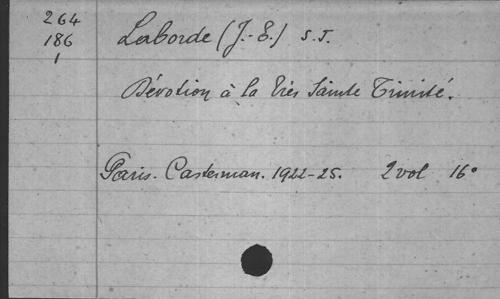 264
186
1
Laborde (J.-E.) S.J.
Dévotion à la Très Sainte Trinité.
Paris. Casterman. 1922-25. 2 vol 16°